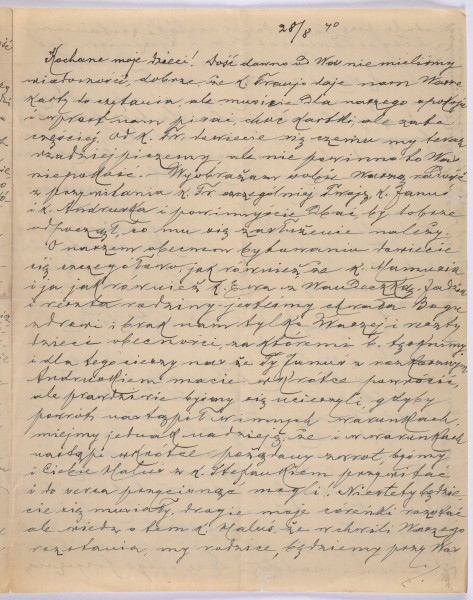 28/8 40
Kochane moje Dzieci! Dość dawno od Was nie mieliśmy
wiadomości, dobrze że K. Franjo daje nam Wasze
karty do czytania, ale musicie dla naszego spokoju
i wprost nam pisać, choć kartki ale zato
częściej. Od K. Fr. dowiecie się czemu my teraz
rzadziej piszemy, ale nie powinno to Was
niepokoić. — Wyobrażam sobie Waszą radość
z przywitania K. Fr. szczególniej Twoją K. Januś
i K. Andrusia i powinniście dbać by dobrze
odpoczął, co mu się zasłużenie należy.
O naszem obecnem bytowaniu dowiecie
się szczegółowo, jak również że K. Mamusia
i ja jak również K. Ewa z Wandeczką, Jadzia
i reszta rodziny jesteśmy chwała Bogu
zdrowi i brak nam tylko Waszej i reszty
dzieci obecności, za któremi b. tęsknimy
i dla tego cieszy nas że Ty Januś z
Andrusikiem macie wkrótce powrócić,
ale prawdziwie byśmy się ucieszyli, gdyby
powrót nastąpił w innych warunkach
miejmy jednak nadzieję, że i w warunkach
nastąpi wkrótce pożądany zwrot byśmy
i Ciebie Haluś z K. Stefankiem przywitać
i do serca przycisnąć mogli! Niestety będzie
cie się musiały, drogie moje córeńki rozstać
ale wiedz o tem K. Haluś, że w chwili Waszego
rozstania, my rodzice, będziemy przy Was